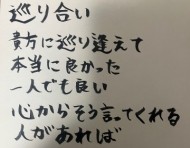 巡り合い
貴方に巡り逢えて
本当に良かった
一人でも良い
心からそう言ってくれる
人があれば